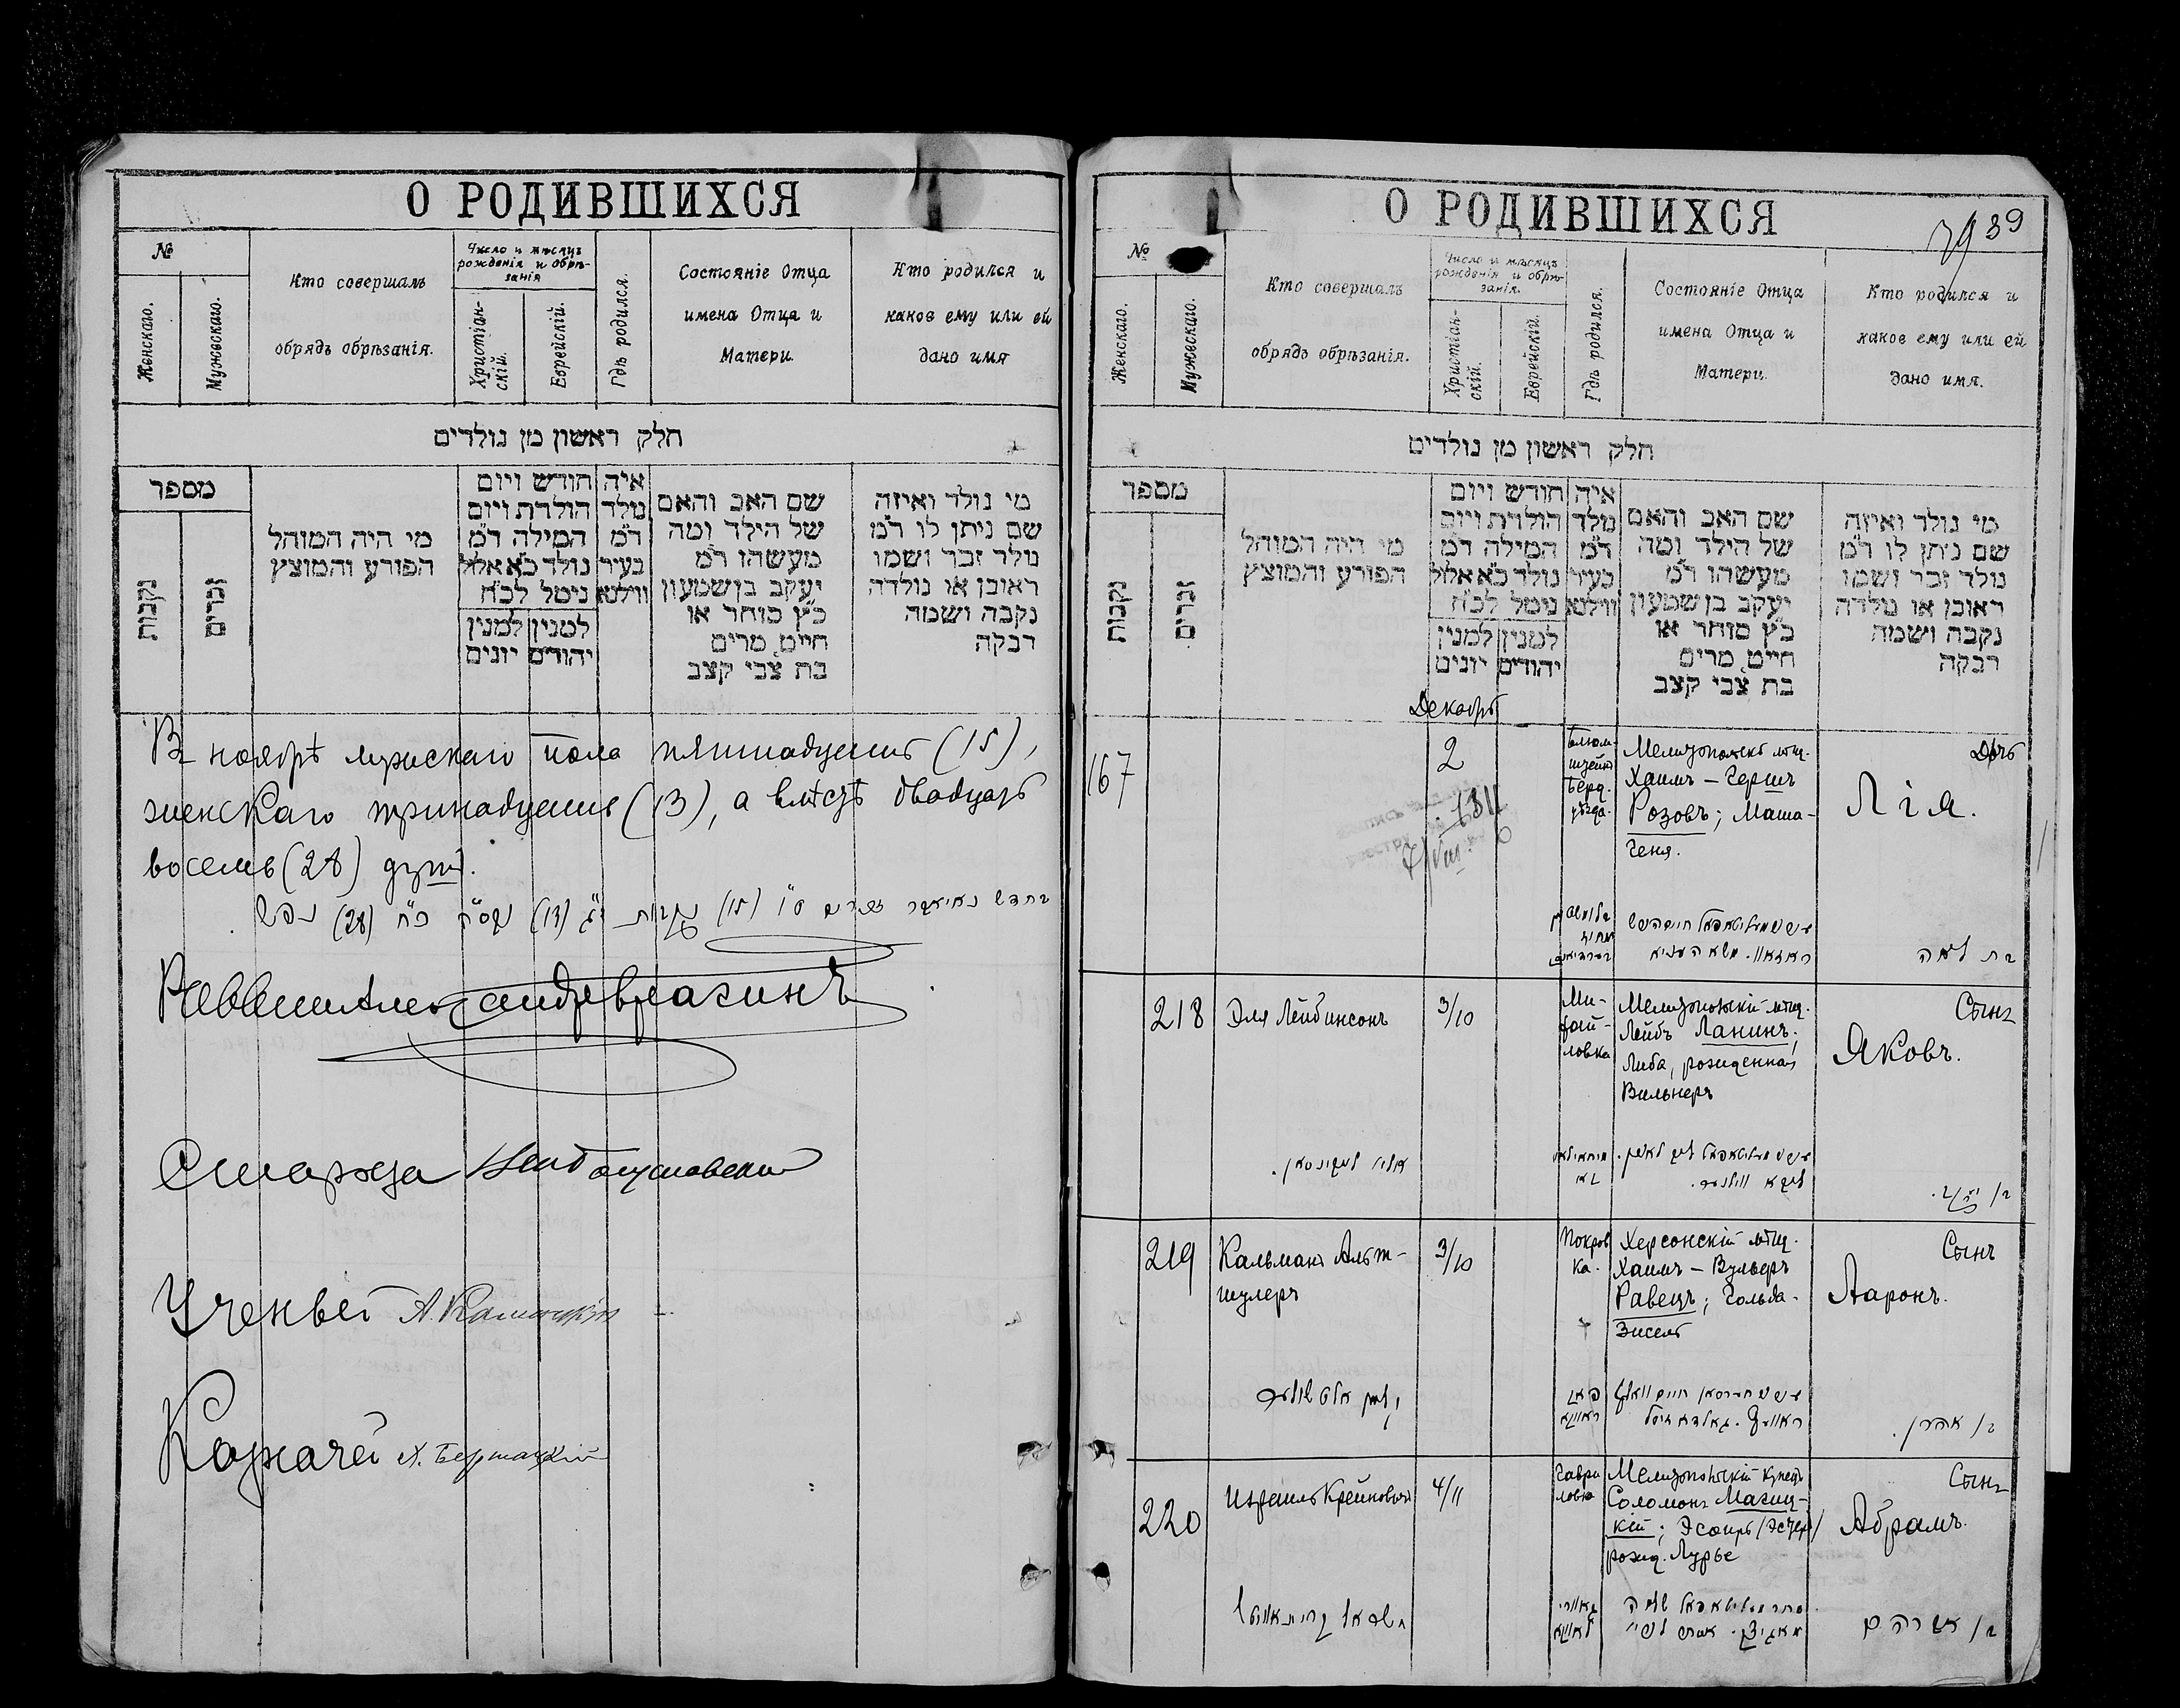 О РОДИВШИХСЯ
№
Женскаго.
Мужескаго.
Кто совершалъ
обрядъ обрѣзанія.
Число и мѣсяцъ
рожденія и обрѣ-
занія
Христіан-
скій.
Еврейскій.
Гдѣ родился.
Состояніе Отца
имена Отца и
Матери.
Кто родился и
каков ему или ей
дано имя
חלק ראשון מן נולדים
מספר
נקבות
זכרים
מי היה המוהל
הפורע והמוצץ
חודש ויום
הולדת ויום
המילה ד״מ
נולד כ״א אלול
נימל לכ״ח
למנין למנין
יהודים יונים
איה
נולד
ד״מ
בעיר
ווילנא
שם האב והאם
של הילד ומה
מעשהו ד״מ
יעקב בן שמעון
כ״ץ סוחר או
חייט מרים
בת צבי קצב
מי נולד ואיזה
שם ניתן לו ד״מ
נולד זכר ושמו
ראובן או נולדה
נקבה ושמה
רבקה
В ноябрѣ мужскаго пола пятнадцать (15),
женскаго тринадцать (13), а вмѣстѣ двадцать
восемь (28) душ.
בחדש נאיאבר זכרים ט״ו (15) נקבות י״ג (13) בס״ה כ״ח (28) נפש
Раввинъ Александръ Брагинъ
Староста
Ученый А.
Казначей
О РОДИВШИХСЯ
39
№
Женскаго.
Мужескаго.
Кто совершалъ
обрядъ обрѣзанія.
Число и мѣсяцъ
рожденія и обрѣ-
занія.
Христіан-
скій.
Еврейскій.
Гдѣ родился.
Состояніе Отца
имена Отца и
Матери.
Кто родился и
каков ему или ей
дано имя.
חלק ראשון מן נולדים
מספר
נקבות
זכרים
מי היה המוהל
הפורע והמוצץ
חודש ויום
הולדת ויום
המילה ד״מ
נולד כ״א אלול
נימל לכ״ח
למנין למנין
יהודים יונים
איה
נולד
ד״מ
בעיר
ווילנא
שם האב והאם
של הילד ומה
מעשהו ד״מ
יעקב בן שמעון
כ״ץ סוחר או
חייט מרים
בת צבי קצב
מי נולד ואיזה
שם ניתן לו ד״מ
נולד זכר ושמו
ראובן או נולדה
נקבה ושמה
רבקה
Декабрь
167
2
Берд.
уѣзда.
Мелитопольскій мѣщ.
Хаимъ – Гершъ
Розовъ; Маша-
Геня.
Дочь
Лія.
בת לאה
218
Эля Лейбинсонъ
3/10
Ми-
хай-
ловка
Мелитопольскій мѣщ.
Лейбъ Ланинъ;
Либа, рожденная
Вильнеръ
Сынъ
Яковъ.
אליי לייבינסאן.
ליבא ווילנער.
בן יעקב.
219
Кальманъ Альт-
шулеръ
3/10
Покров
ка.
Херсонскій мѣщ.
Хаимъ – Вульфъ
Равецъ; Гольда-
Зисель
Сынъ
Ааронъ.
קלמן אלטשולער
בן אהרן.
220
Израиль Крейновый
4/11
Гаври
ловка
Мелитопольскій купецъ
Соломонъ Магиц-
кій; Эсфирь (Эстеръ)
рожд. Лурье
Сынъ
Абрамъ.
בן אברהם